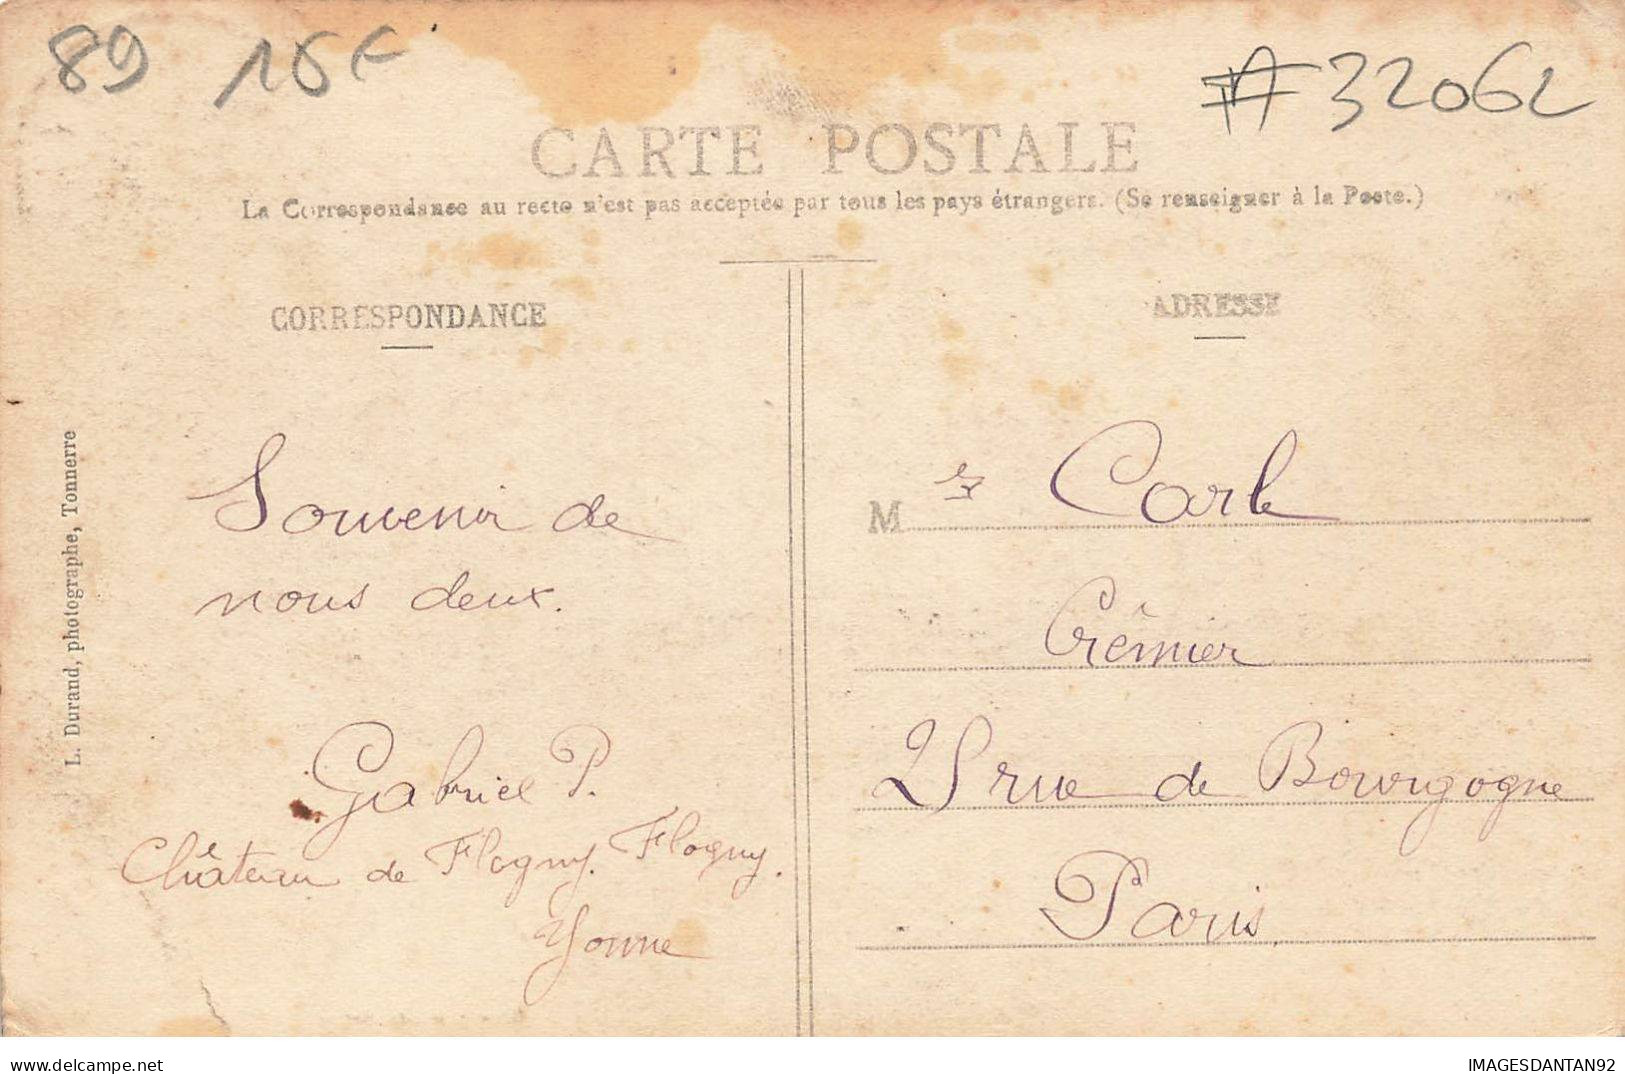 89 15F
#32062
CARTE POSTALE
La Correspondance au recto n'est pas acceptée par tous les pays étrangers. (Se renseigner à la Poste.)
CORRESPONDANCE
Souvenir de
nous deux.
Gabriel P.
Château de Flogny. Flogny.
Yonne
L. Durand, photographe, Tonnerre
ADRESSE
M Carle
Crêmier
rue de Bourgogne
Paris
IMAGESDANTAN92